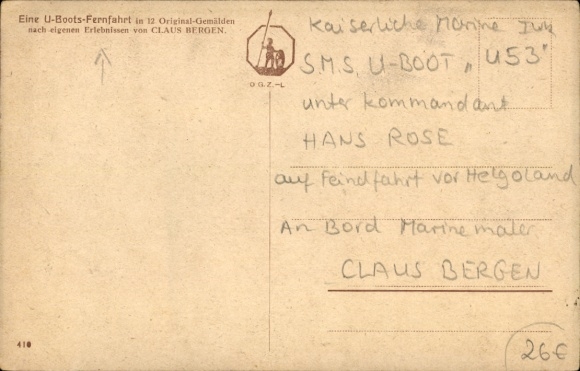 Eine U-Boots-Fernfahrt in 12 Original-Gemälden
nach eigenen Erlebnissen von CLAUS BERGEN.
O.G.Z.-L
Kaiserliche Marine
S.M.S. U-BOOT „U53"
unter Kommandant
HANS ROSE
auf Feindfahrt vor Helgoland
An Bord Marinemaler
CLAUS BERGEN
410
26€